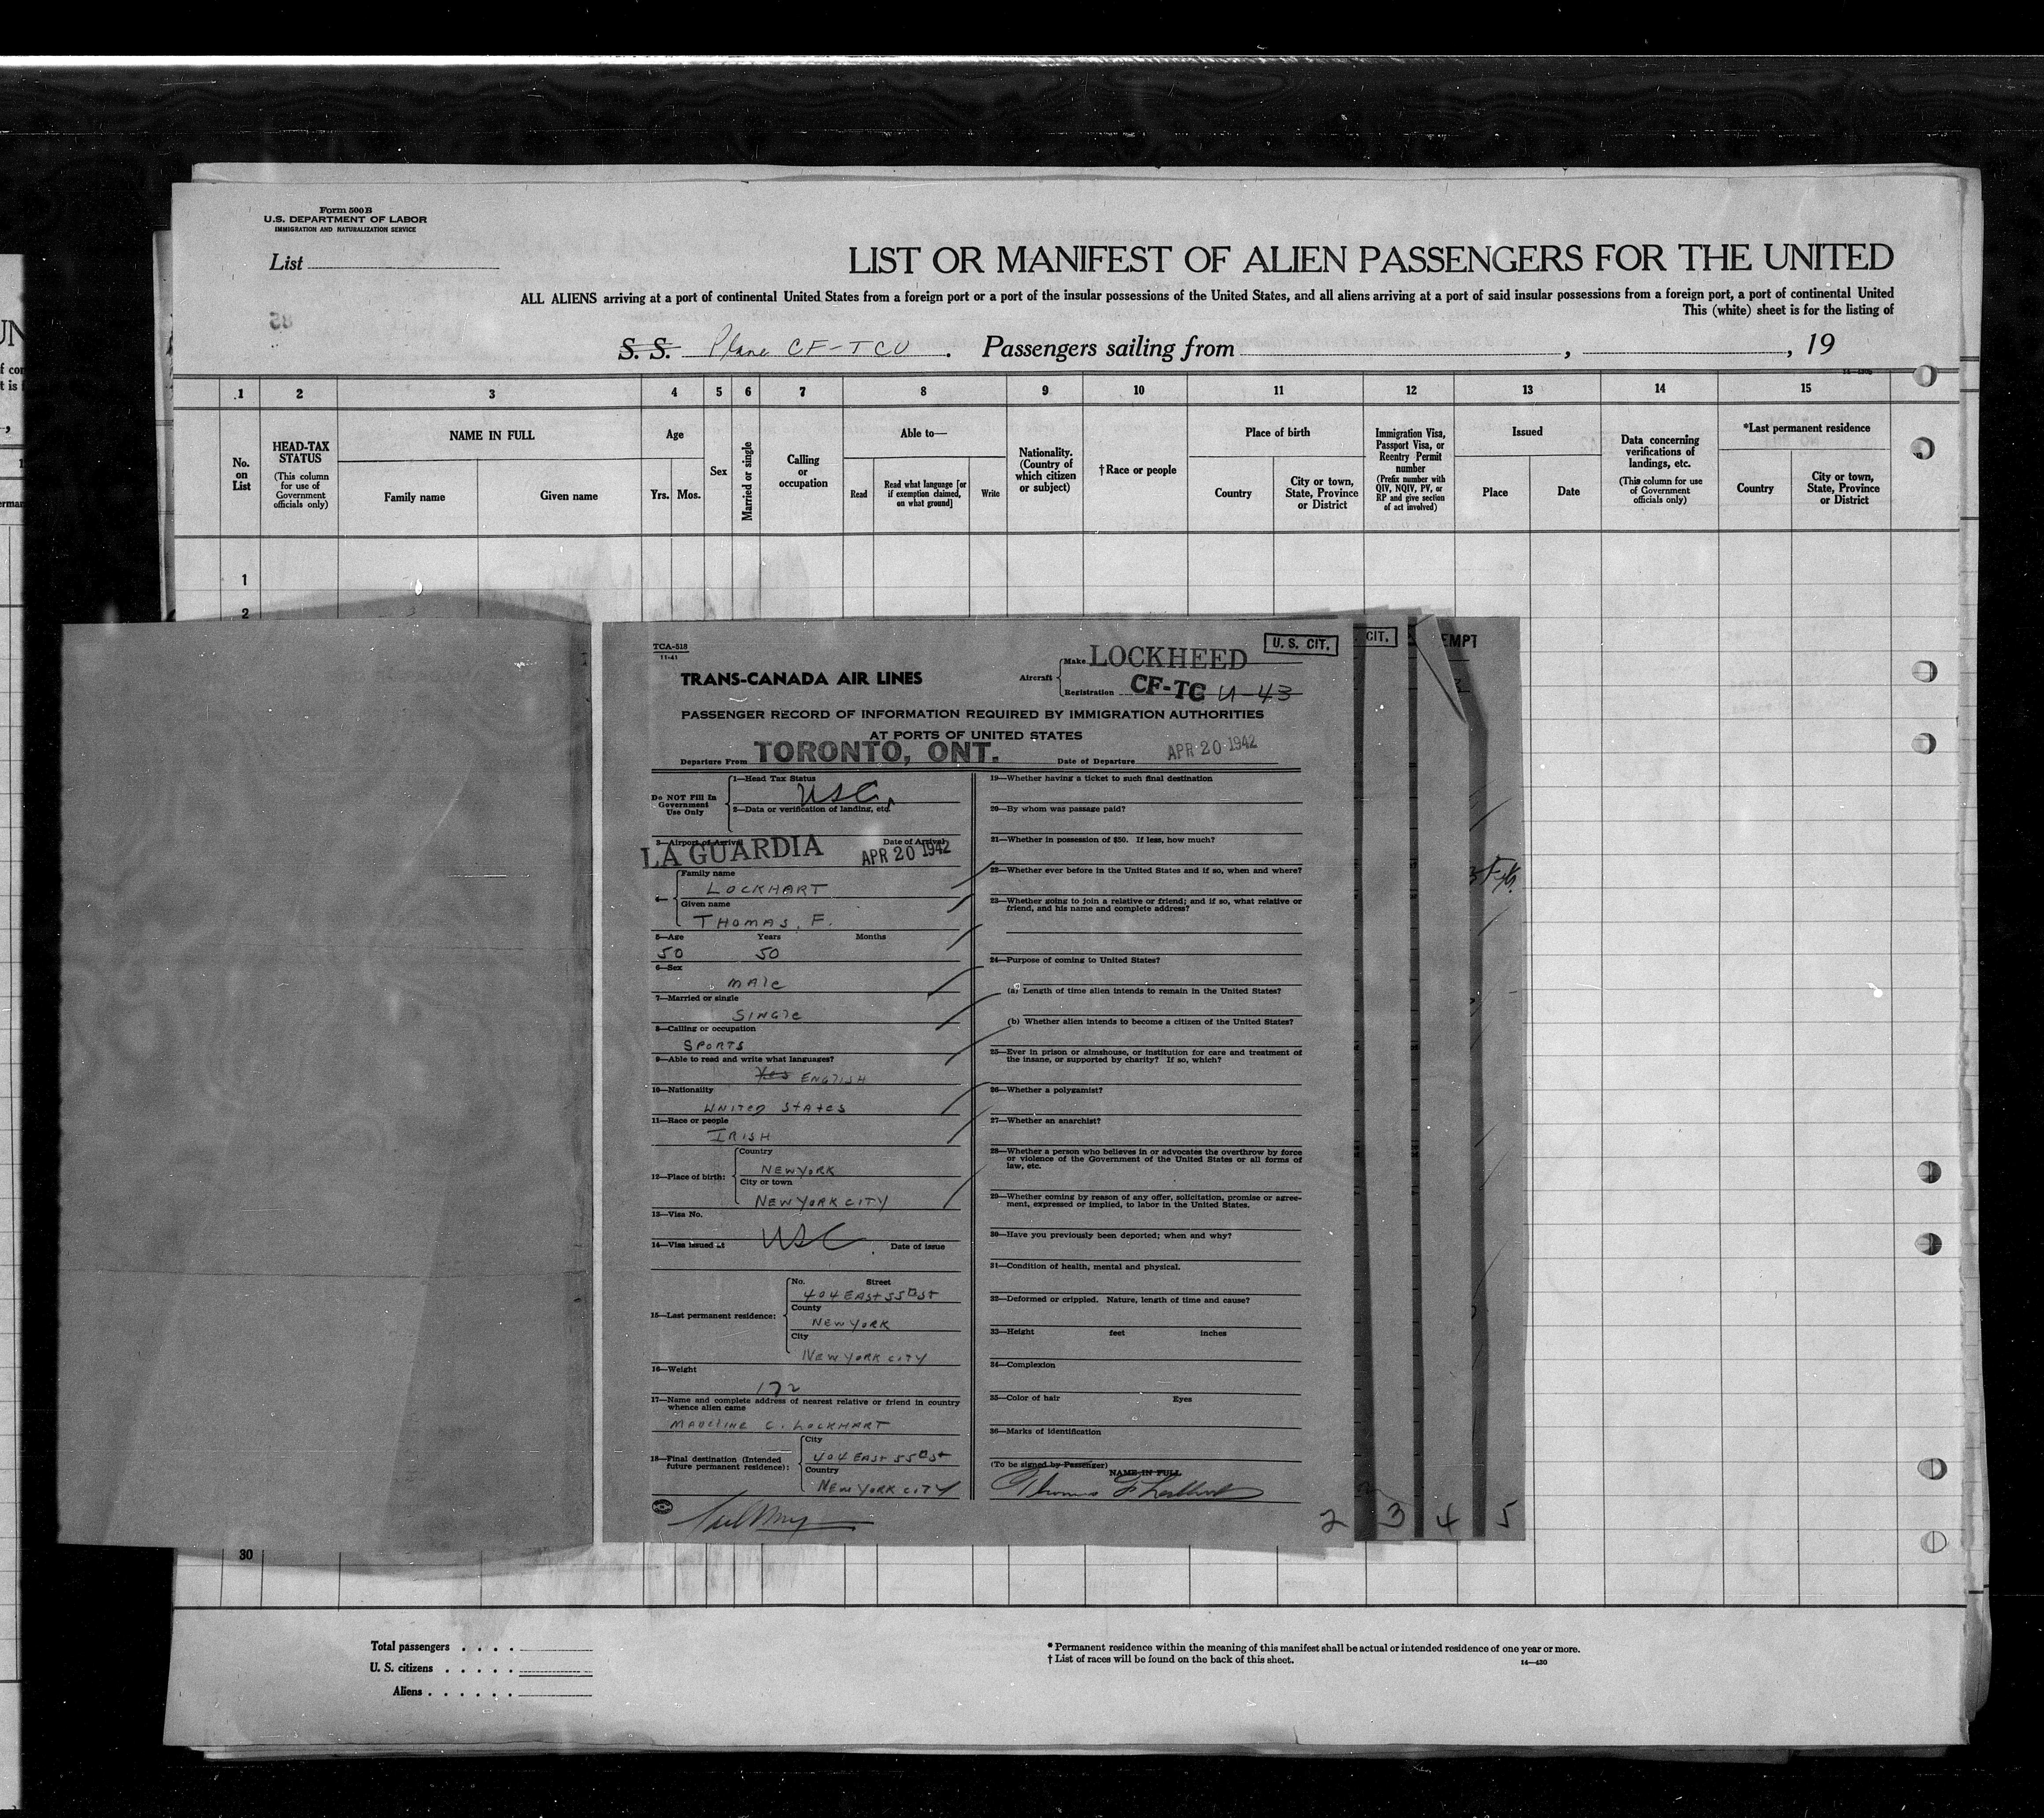 Form 500 B
U.S. DEPARTMENT OF LABOR
IMMIGRATION AND NATURALIZATION SERVICE
List
LIST OR MANIFEST OF ALIEN PASSENGERS FOR THE UNITED
ALL ALIENS arriving at a port of continental United States from a foreign port or a port of the insular possessions of the United States, and all aliens arriving at a port of said insular possessions from a foreign port, a port of continental United
This (white) sheet is for the listing of
S. S. Plane CF-TCU. Passengers sailing from , , 19
1 2 3 4 5 6 7 8 9 10 11 12 13 14 15
No. on List
HEAD-TAX STATUS
(This column for use of Government officials only)
NAME IN FULL
Family name
Given name
Age
Yrs. Mos.
Sex
Married or single
Calling or occupation
Able to—
Read
Read what language [or if exemption claimed, on what ground]
Write
Nationality. (Country of which citizen or subject)
† Race or people
Place of birth
Country
City or town, State, Province or District
Immigration Visa, Passport Visa, or Reentry Permit number
(Prefix number with QIV, NQIV, PV, or RP and give section of act involved)
Issued
Place
Date
Data concerning verifications of landings, etc.
(This column for use of Government officials only)
*Last permanent residence
Country
City or town, State, Province or District
1
2
TCA-518
11-41
TRANS-CANADA AIR LINES
Aircraft
Make LOCKHEED
Registration CF-TC U-43
U. S. CIT.
CIT.
EMPT
PASSENGER RECORD OF INFORMATION REQUIRED BY IMMIGRATION AUTHORITIES
AT PORTS OF UNITED STATES
Departure From TORONTO, ONT. Date of Departure APR 20 1942
Do NOT Fill In
Government
Use Only
1—Head Tax Status
USC
2—Data or verification of landing, etc.
3—Airport of Arrival Date of Arrival
LA GUARDIA APR 20 1942
4— Family name
LOCKHART
Given name
THOMAS, F.
5—Age Years Months
50 50
6—Sex
MAle
7—Married or single
SINGle
8—Calling or occupation
SPORTS
9—Able to read and write what languages?
Yes ENGlISH
10—Nationality
UNITED STATES
11—Race or people
IRISH
12—Place of birth:
Country
NEW YORK
City or town
NEW YORK CITY
13—Visa No.
USC
14—Visa issued at Date of issue
15—Last permanent residence:
No. Street
404 EAST 55 ST
County
NEW YORK
City
NEW YORK CITY
16—Weight
172
17—Name and complete address of nearest relative or friend in country
whence alien came
MADELINE C. LOCKHART
18—Final destination (Intended
future permanent residence):
City
404 EAST 55 ST
Country
NEW YORK CITY
19—Whether having a ticket to such final destination
20—By whom was passage paid?
21—Whether in possession of $50. If less, how much?
22—Whether ever before in the United States and if so, when and where?
23—Whether going to join a relative or friend; and if so, what relative or
friend, and his name and complete address?
24—Purpose of coming to United States?
(a) Length of time alien intends to remain in the United States?
(b) Whether alien intends to become a citizen of the United States?
25—Ever in prison or almshouse, or institution for care and treatment of
the insane, or supported by charity? If so, which?
26—Whether a polygamist?
27—Whether an anarchist?
28—Whether a person who believes in or advocates the overthrow by force
or violence of the Government of the United States or all forms of
law, etc.
29—Whether coming by reason of any offer, solicitation, promise or agree-
ment, expressed or implied, to labor in the United States.
30—Have you previously been deported; when and why?
31—Condition of health, mental and physical.
32—Deformed or crippled. Nature, length of time and cause?
33—Height feet inches
34—Complexion
35—Color of hair Eyes
36—Marks of identification
(To be signed by Passenger)
NAME IN FULL
Thomas F Lockhart
2 3 4 5
30
Total passengers
U. S. citizens
Aliens
* Permanent residence within the meaning of this manifest shall be actual or intended residence of one year or more.
† List of races will be found on the back of this sheet.
14—430